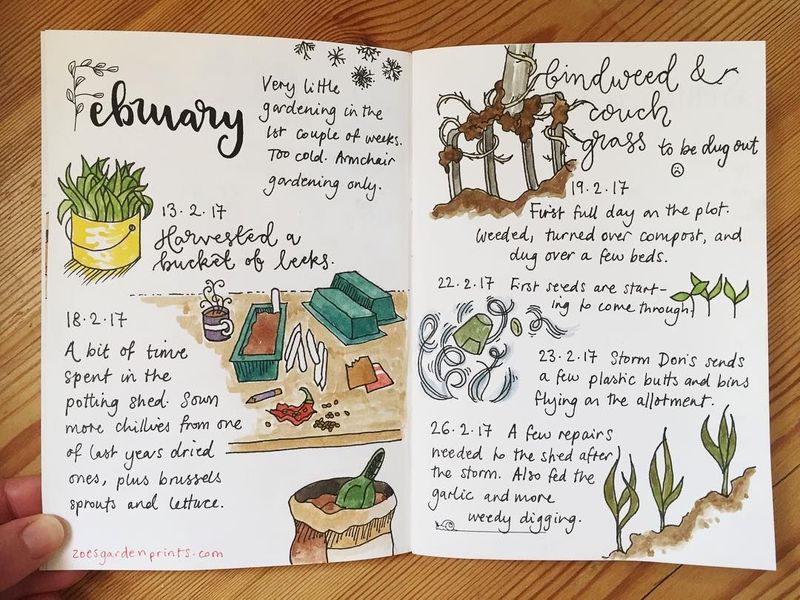 February
Very little
gardening in the
1st couple of weeks.
Too cold. Armchair
gardening only.
13.2.17
Harvested a
bucket of leeks.
18.2.17
A bit of time
spent in the
potting shed. Sown
more chillies from one
of last years dried
ones, plus brussels
sprouts and lettuce.
zoesgardenprints.com
bindweed &
couch
grass to be dug out
19.2.17
First full day on the plot.
Weeded, turned over compost, and
dug over a few beds.
22.2.17 First seeds are start-
ing to come through.
23.2.17 Storm Doris sends
a few plastic butts and bins
flying on the allotment.
26.2.17 A few repairs
needed to the shed after
the storm. Also fed the
garlic and more
weedy digging.